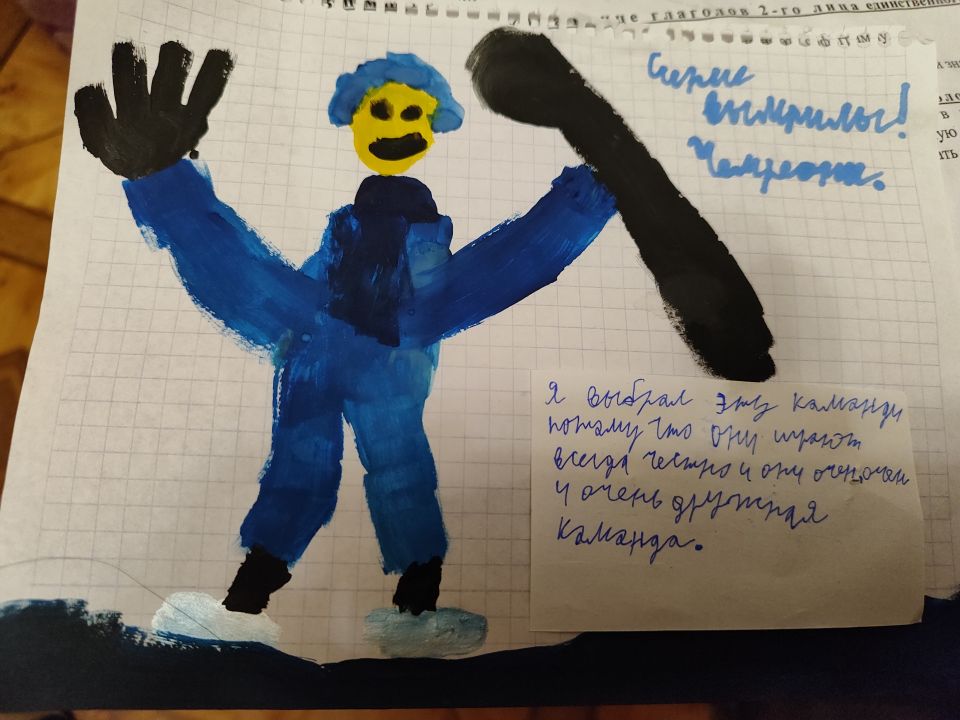 че глаголов 2-го лица единственного
вымрилы!
Я выбрал эту каманду
потаму что они играют
всегда честно и они очен, очен
и очень дружная
каманда.